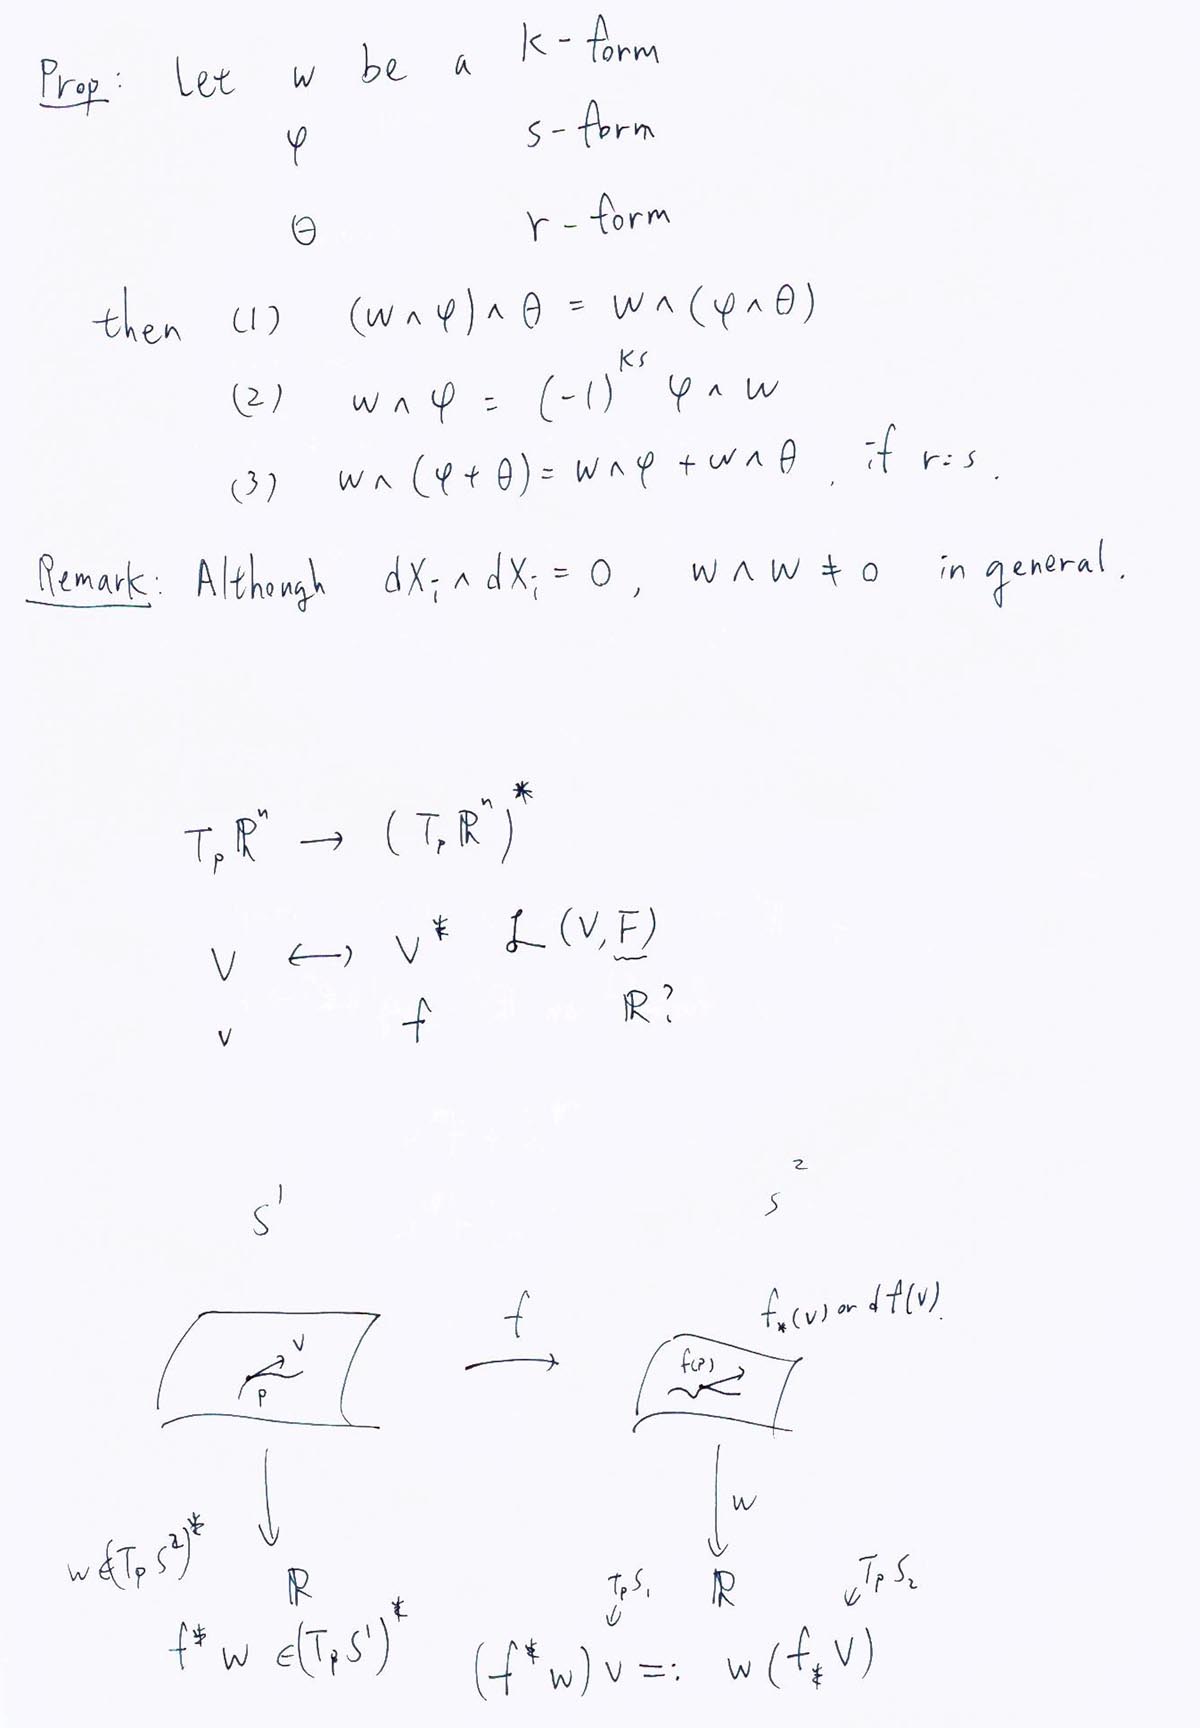 Prop: Let w be a k-form
φ s-form
θ r-form
then (1) (w ∧ φ) ∧ θ = w ∧ (φ ∧ θ)
(2) w ∧ φ = (-1)^{ks} φ ∧ w
(3) w ∧ (φ + θ) = w ∧ φ + w ∧ θ, if r=s.
Remark: Although dx_i ∧ dx_i = 0, w ∧ w ≠ 0 in general.
T_p ℝ^n → (T_p ℝ^n)^*
V ↔ V^* ℒ(V, F)
v f ℝ?
S^1 S^2
f f_*(v) or df(v).
v f(p)
p
w
w ∈ (T_p S^2)^*
ℝ T_p S_1 ℝ T_p S_2
f^* w ∈ (T_p S^1)^* (f^* w) v =: w (f_* V)